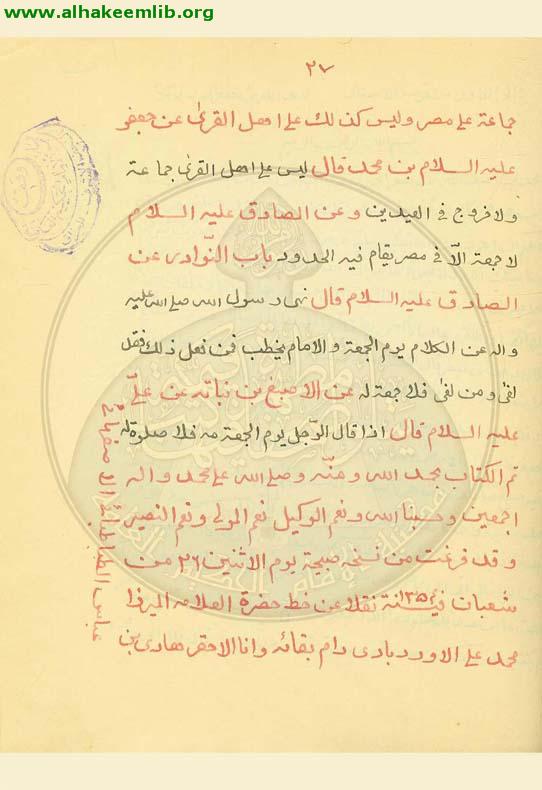 www.alhakeemlib.org
٢٧
جماعة على مصر وليس كذلك على اهل القرى عن جعفر
عليه السلام بن محمد قال ليس على اهل القرى جماعة
ولا خروج في العيدين وعن الصادق عليه السلام
لا جمعة الّا في مصر يقام فيه الحدود باب النّوادر عن
الصادق عليه السلام قال نهى رسول الله صلى الله عليه
واله عن الكلام يوم الجمعة والامام يخطب فمن فعل ذلك فقد
لغى ومن لغى فلا جمعة له عن الاصبغ بن نباته عن علىّ
عليه السلام قال اذا قال الرّجل يوم الجمعة مه فلا صلوة له
تم الكتاب بحمد الله ومنّه وصلى الله على محمد واله
اجمعين وحسبنا الله ونعم الوكيل نعم المولى ونعم النصير
وقد فرغت من نسخه صبيحة يوم الاثنين ٢٦ من
شعبان في سنة ١٣٥٤ نقلا عن خط حضرة العلامه الميرزا
محمد على الاوردبادى دام بقائه وانا الاحقر هادى بن
عباس الطباطبائى الاصفهانى